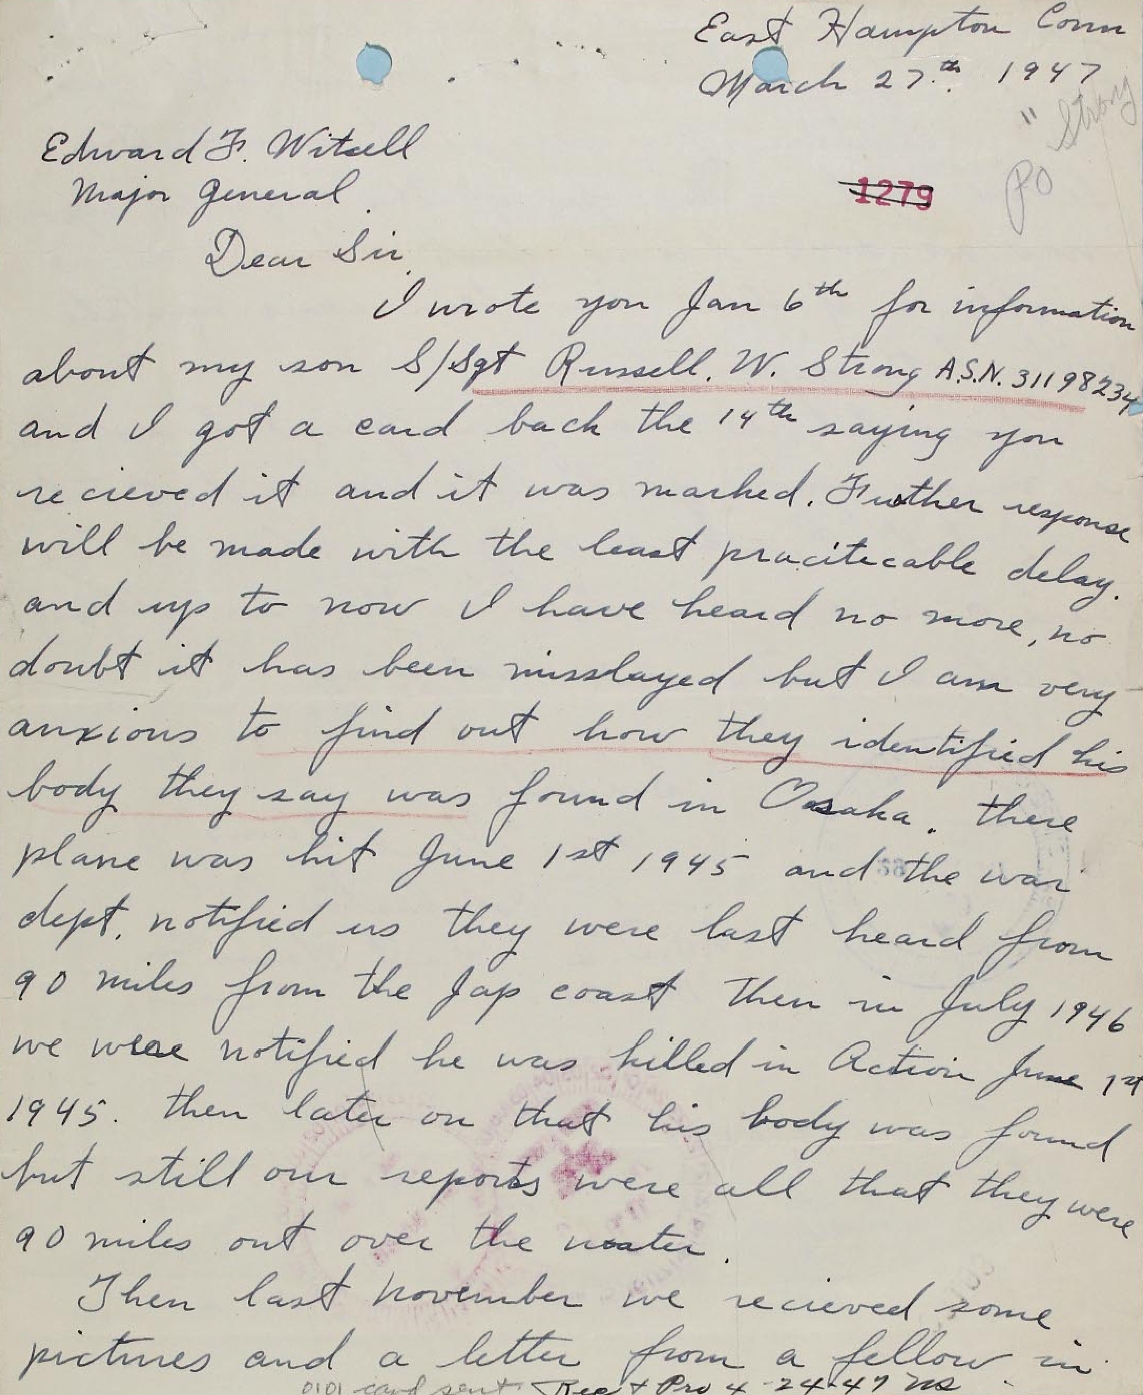 East Hampton Conn
March 27th. 1947
" Strong
PO
Edward F. Witsell
Major General.
1279
Dear Sir,
I wrote you Jan 6th for information
about my son S/Sgt Russell. W. Strong A.S.N. 31198234
and I got a card back the 14th saying you
recieved it and it was marked. Futher response
will be made with the least pracitecable delay.
and up to now I have heard no more, no
doubt it has been misslayed but I am very
anxious to find out how they identified his
body they say was found in Osaka. there
plane was hit June 1st 1945 and the war
dept. notified us they were last heard from
90 miles from the Jap coast then in July 1946
we were notified he was killed in Action June 1st
1945. then later on that his body was found
but still our reports were all that they were
90 miles out over the water.
Then last November we recieved some
pictures and a letter from a fellow in
0101 card sent Rec + Pro 4-24-47